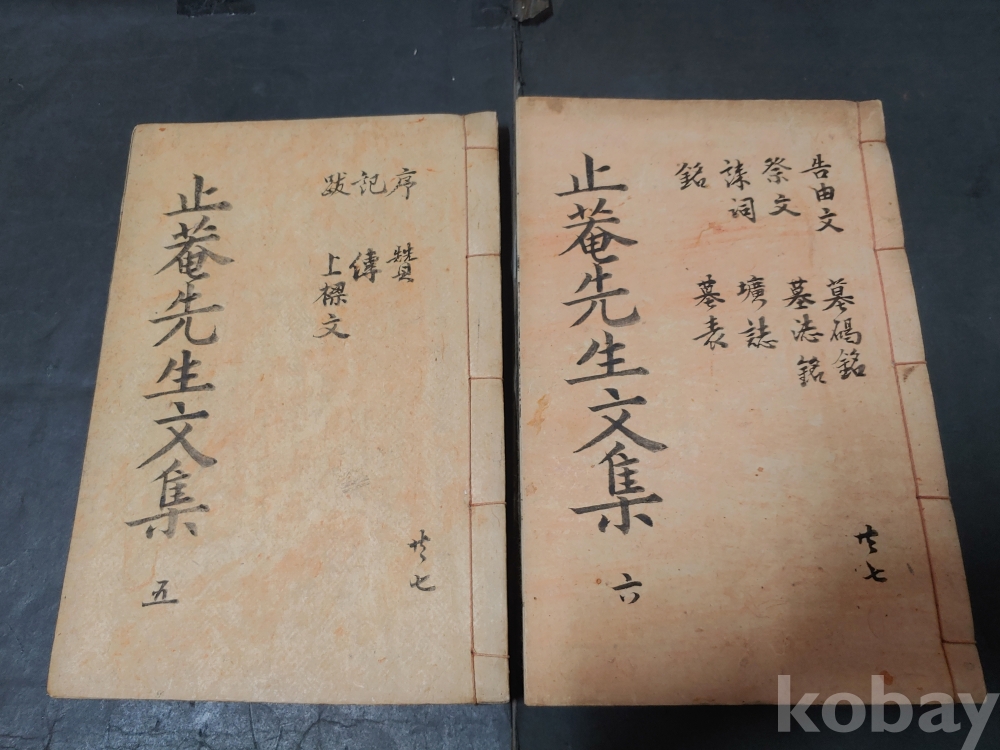 序 贊
記 傳
跋 上樑文
共七
止菴先生文集 五
告由文 墓碣銘
祭文 墓誌銘
誄詞 壙誌
銘 墓表
共七
止菴先生文集 六
kobay